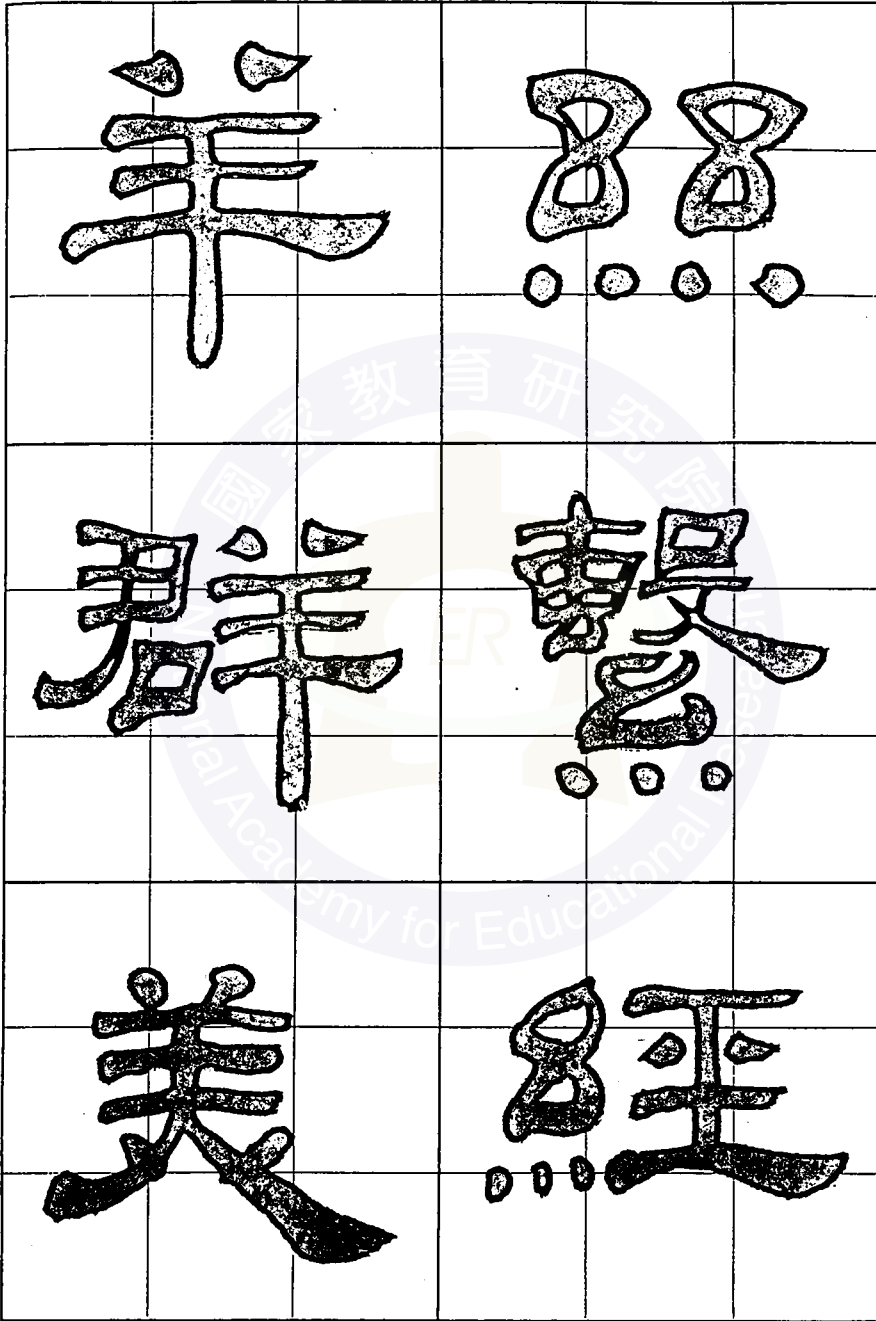 絲繫經
羊群美
國家教育研究院
National Academy for Educational Research